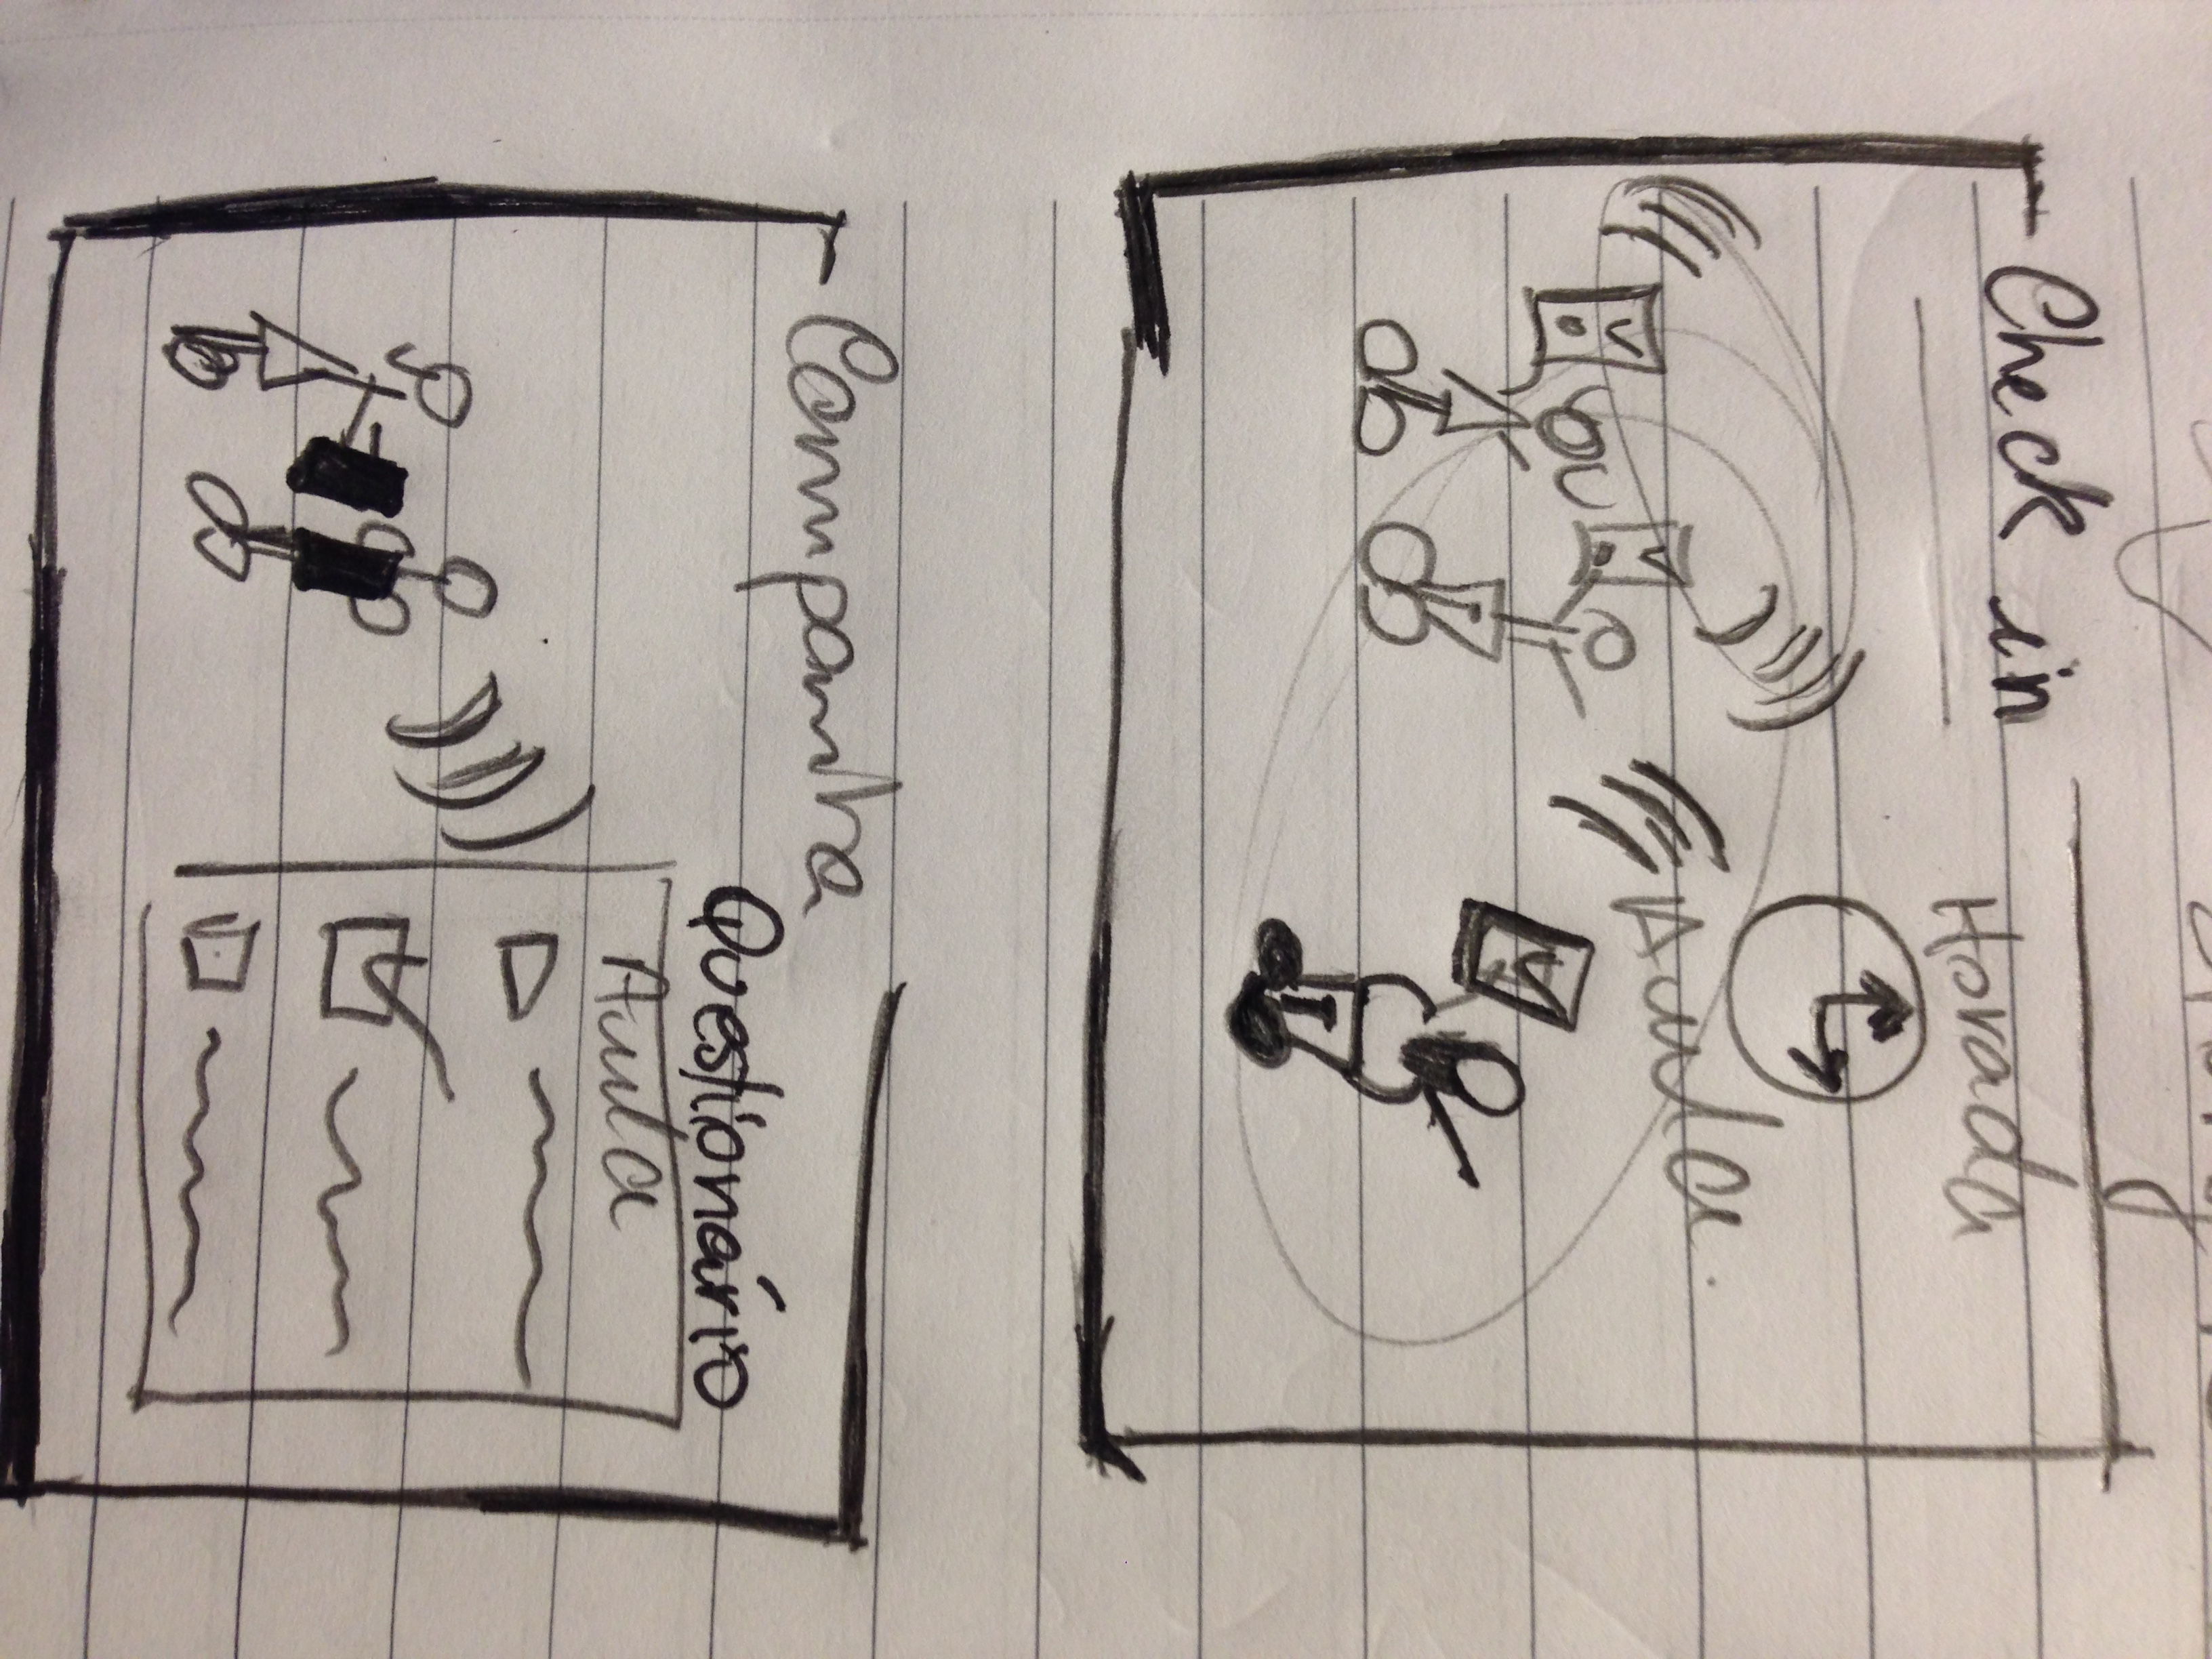 Check in
Hora da
Aula.
Campanha
Questionário
Aula